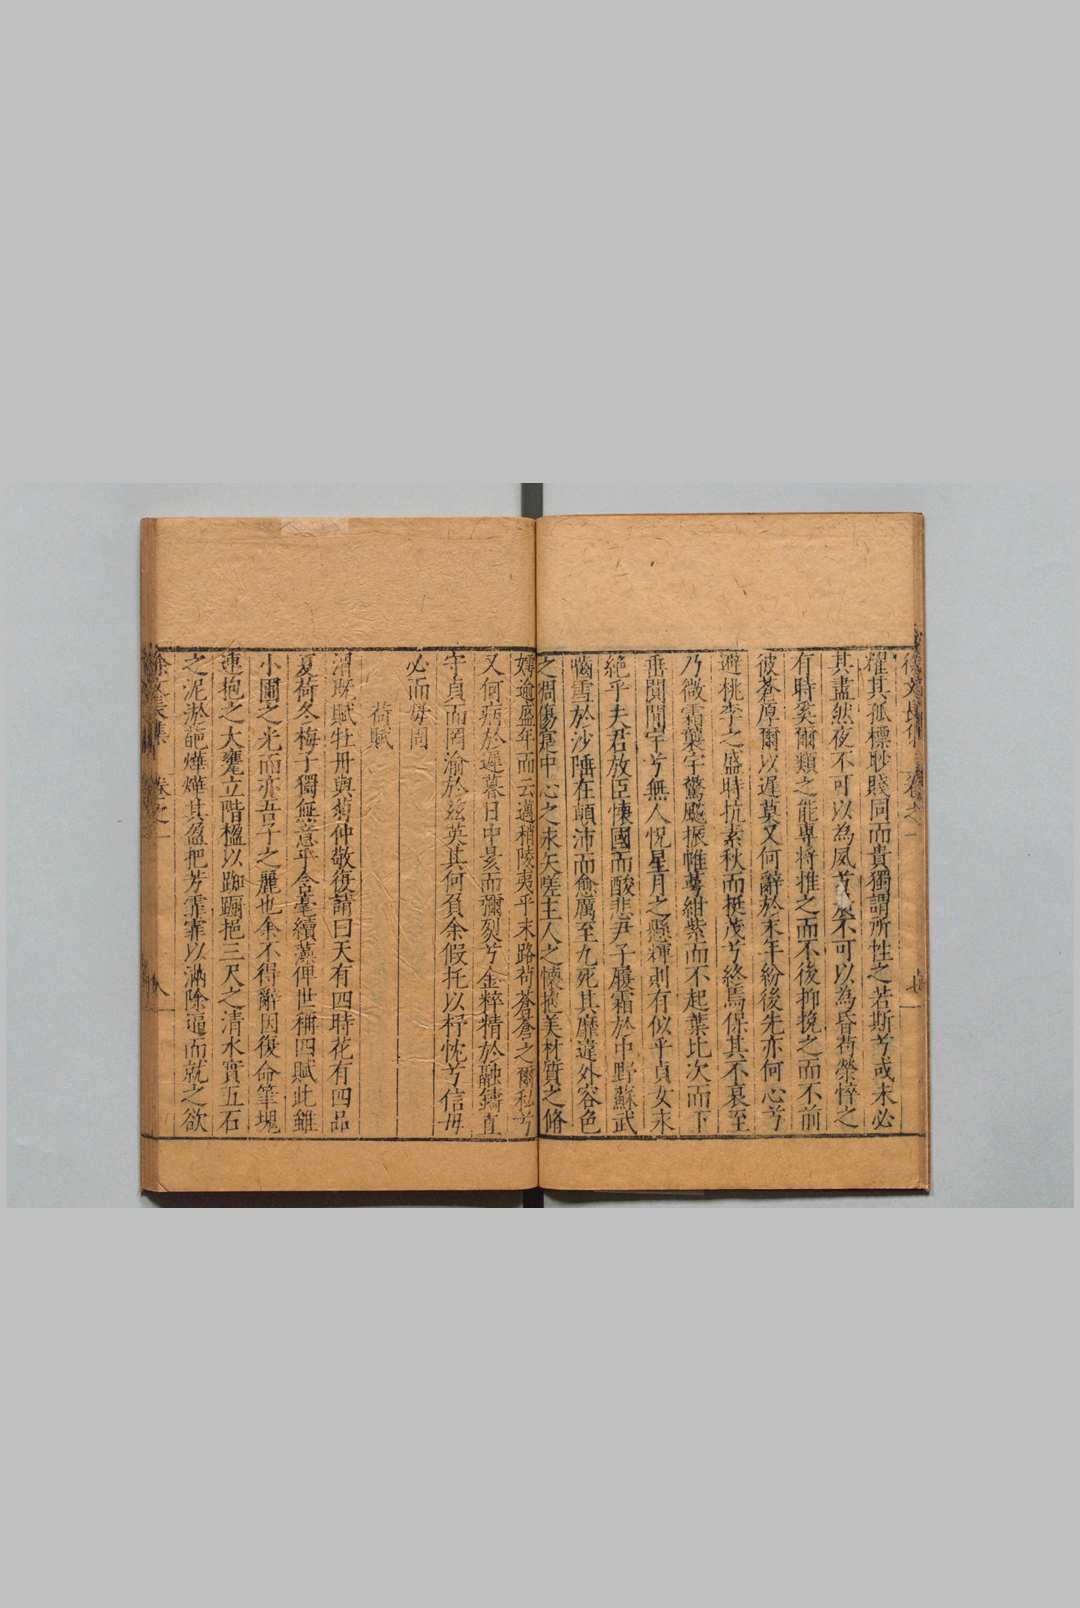 徐文長集 卷之一 七
耀其孤標眇賤同而貴獨謂所性之若斯兮或未必
其盡然夜不可以為夙兮不可以為昏荷榮悴之
有時奚爾類之能專将推之而不後抑挽之而不前
彼蒼厚爾以遲莫又何辭於末年紛後先亦何心兮
避桃李之盛時抗素秋而挺茂兮終焉保其不衰至
乃微霜襲宇驚颷振帷萼紺紫而不起葉比次而下
垂閴閒宇兮無人怳星月之懸輝則有似乎貞女未
絶乎夫君放臣懐國而酸悲尹子履霜於中野蘇武
嚙雪於沙陲在顛沛而愈厲至九死其靡違外容色
之凋傷寔中心之未夭嗟主人之懐抱美材質之脩
姱逾盛年而云邁稍陵夷乎末路苟蒼蒼之爾私兮
又何病於遲暮日中昃而彌烈兮金粹精於融鑄直
宇貞而罔渝於兹英其何負余假托以杼忱兮信毋
必而毋固
荷賦
渭既賦牡丹與菊仲敬復請曰天有四時花有四品
夏荷冬梅子獨無意乎含毫續藻俾世稱四賦此雖
小圃之光而亦吾子之麗也余不得辭因復命筆塊
連抱之大甕立階楹以踟躕挹三尺之清水實五石
之泥淤葩燁燁其盈把芳霏霏以滿除逼而就之欲
徐文長集 卷之一 八